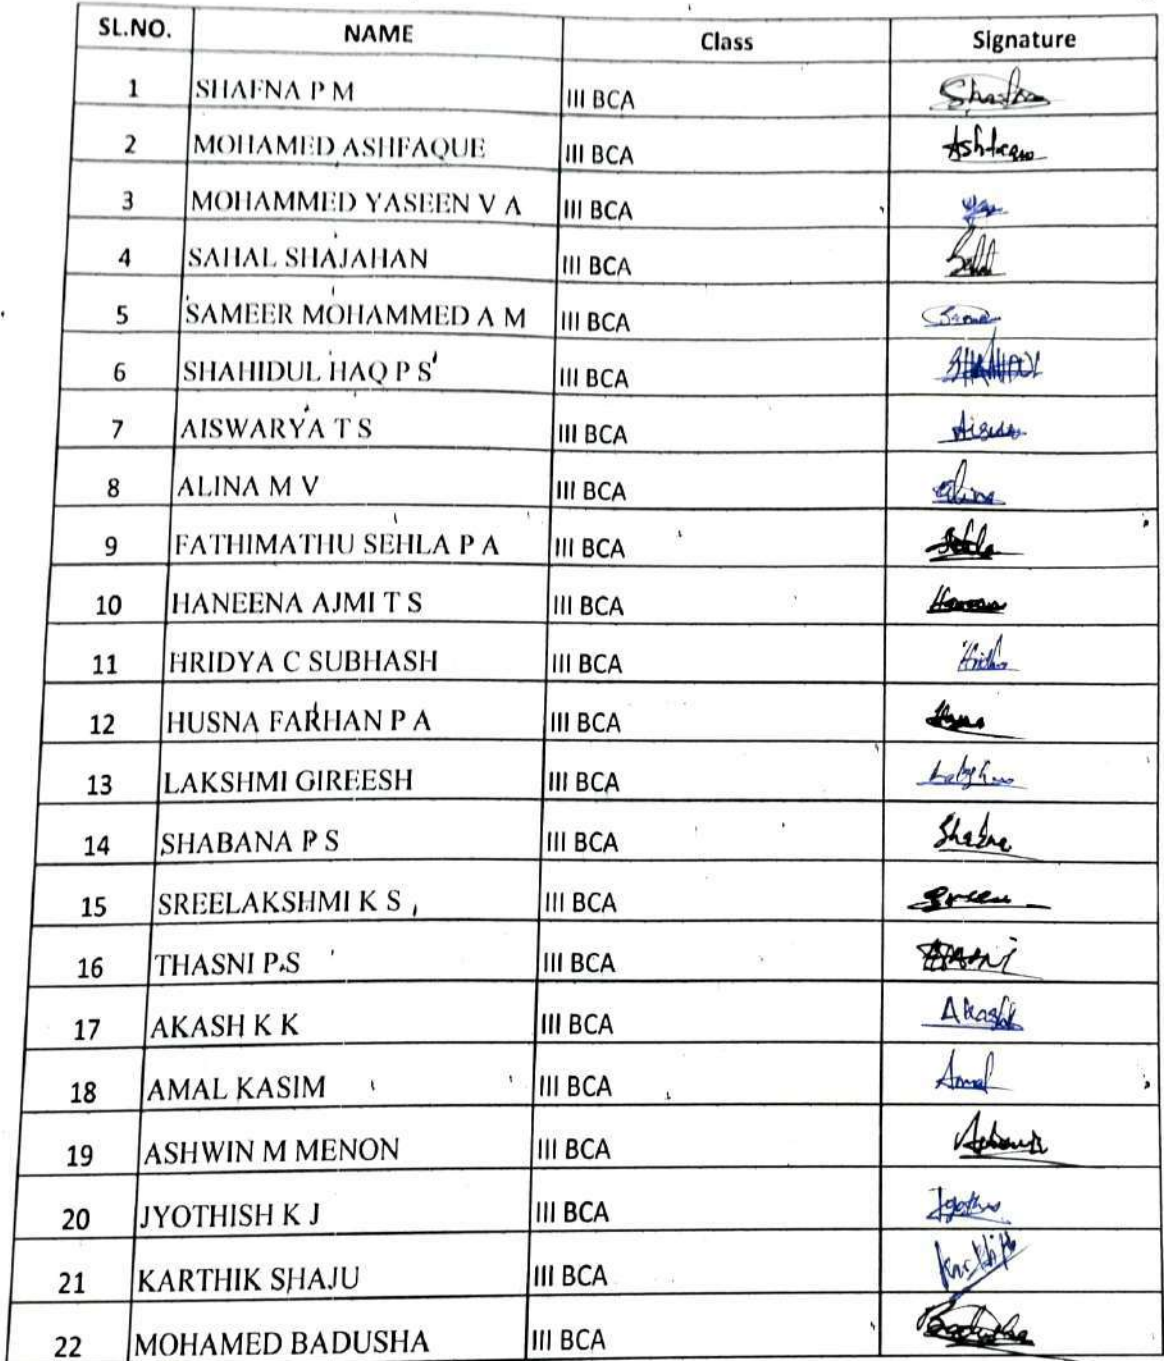 SL.NO. NAME Class Signature
1 SHAFNA P M III BCA
2 MOHAMED ASHFAQUE III BCA
3 MOHAMMED YASEEN V A III BCA
4 SAHAL SHAJAHAN III BCA Sahal
5 SAMEER MOHAMMED A M III BCA
6 SHAHIDUL HAQ P S III BCA
7 AISWARYA T S III BCA
8 ALINA M V III BCA Alina
9 FATHIMATHU SEHLA P A III BCA Sehla
10 HANEENA AJMI T S III BCA
11 HRIDYA C SUBHASH III BCA
12 HUSNA FARHAN P A III BCA
13 LAKSHMI GIREESH III BCA
14 SHABANA P S III BCA
15 SREELAKSHMI K S III BCA Sree
16 THASNI P S III BCA THASNI
17 AKASH K K III BCA Akash
18 AMAL KASIM III BCA Amal
19 ASHWIN M MENON III BCA
20 JYOTHISH K J III BCA
21 KARTHIK SHAJU III BCA Karthik
22 MOHAMED BADUSHA III BCA Badusha